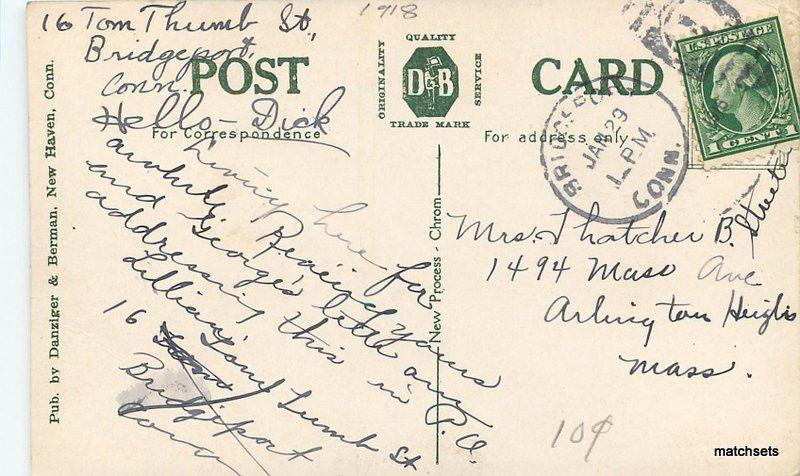 1918
16 Tom Thumb St,
Bridgeport
Conn.
Hello - Dick
Living here for
awhile. Received yours
and George's letter am
addressing this in P.O.
Lillian
16 Tom Thumb St
Bridgeport
Conn
POST CARD
ORIGINALITY
QUALITY
SERVICE
D&B
TRADE MARK
For Correspondence
For address only
Pub. by Danziger & Berman, New Haven, Conn.
New Process - Chrom
BRIDGEPORT
JAN 29
1 PM
CONN.
U.S. POSTAGE
1 CENT 1
Mrs. Thatcher B. Streeter
1494 Mass Ave
Arlington Heights
Mass.
10¢
matchsets